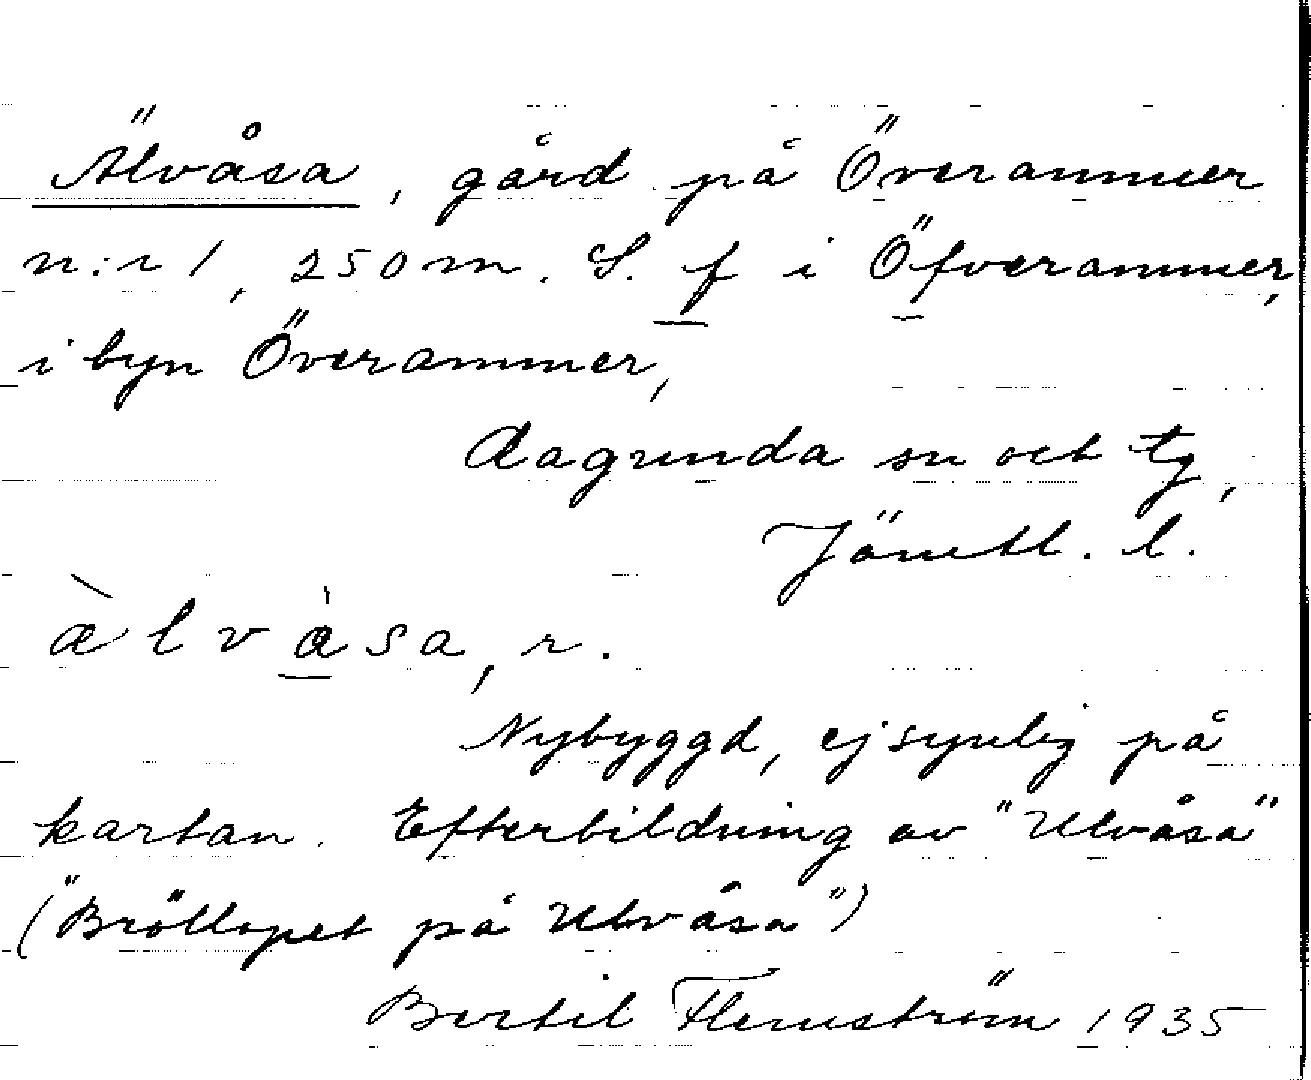 Älvåsa, gård på Överammer
n:r 1, 250 m. S. f i Öfverammer,
i byn Överammer,
Ragunda sn och tg,
Jämtl. l.
æ̀lvàsa, r.
Nybyggd, ej synlig på
kartan. Efterbildning av "Ulvåsa"
("Bröllopet på Ulvåsa")
Bertil Flemström 1935